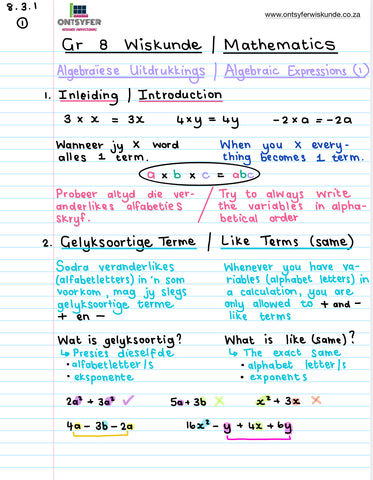 8.3.1
www.ontsyferwiskunde.co.za
①
ONTSYFER
Gr 8 Wiskunde / Mathematics
Algebraïese Uitdrukkings / Algebraic Expressions (1)
1. Inleiding / Introduction
3 × x = 3x 4×y = 4y -2×a = -2a
Wanneer jy X word
alles 1 term.
When you X every-
thing becomes 1 term.
a × b × c = abc
Probeer altyd die ver-
anderlikes alfabeties
skryf.
Try to always write
the variables in alpha-
betical order
2. Gelyksoortige Terme / Like Terms (same)
Sodra veranderlikes
(alfabetletters) in 'n som
voorkom, mag jy slegs
gelyksoortige terme
+ en -
Whenever you have va-
riables (alphabet letters) in
a calculation, you are
only allowed to + and -
like terms
Wat is gelyksoortig?
↳ Presies dieselfde
• alfabetletter/s
• eksponente
What is like (same)?
↳ The exact same
• alphabet letter/s
• exponents
2a² + 3a² ✓ 5a + 3b ✗ x² + 3x ✗
4a - 3b - 2a 16x² - y + 4x + 6y